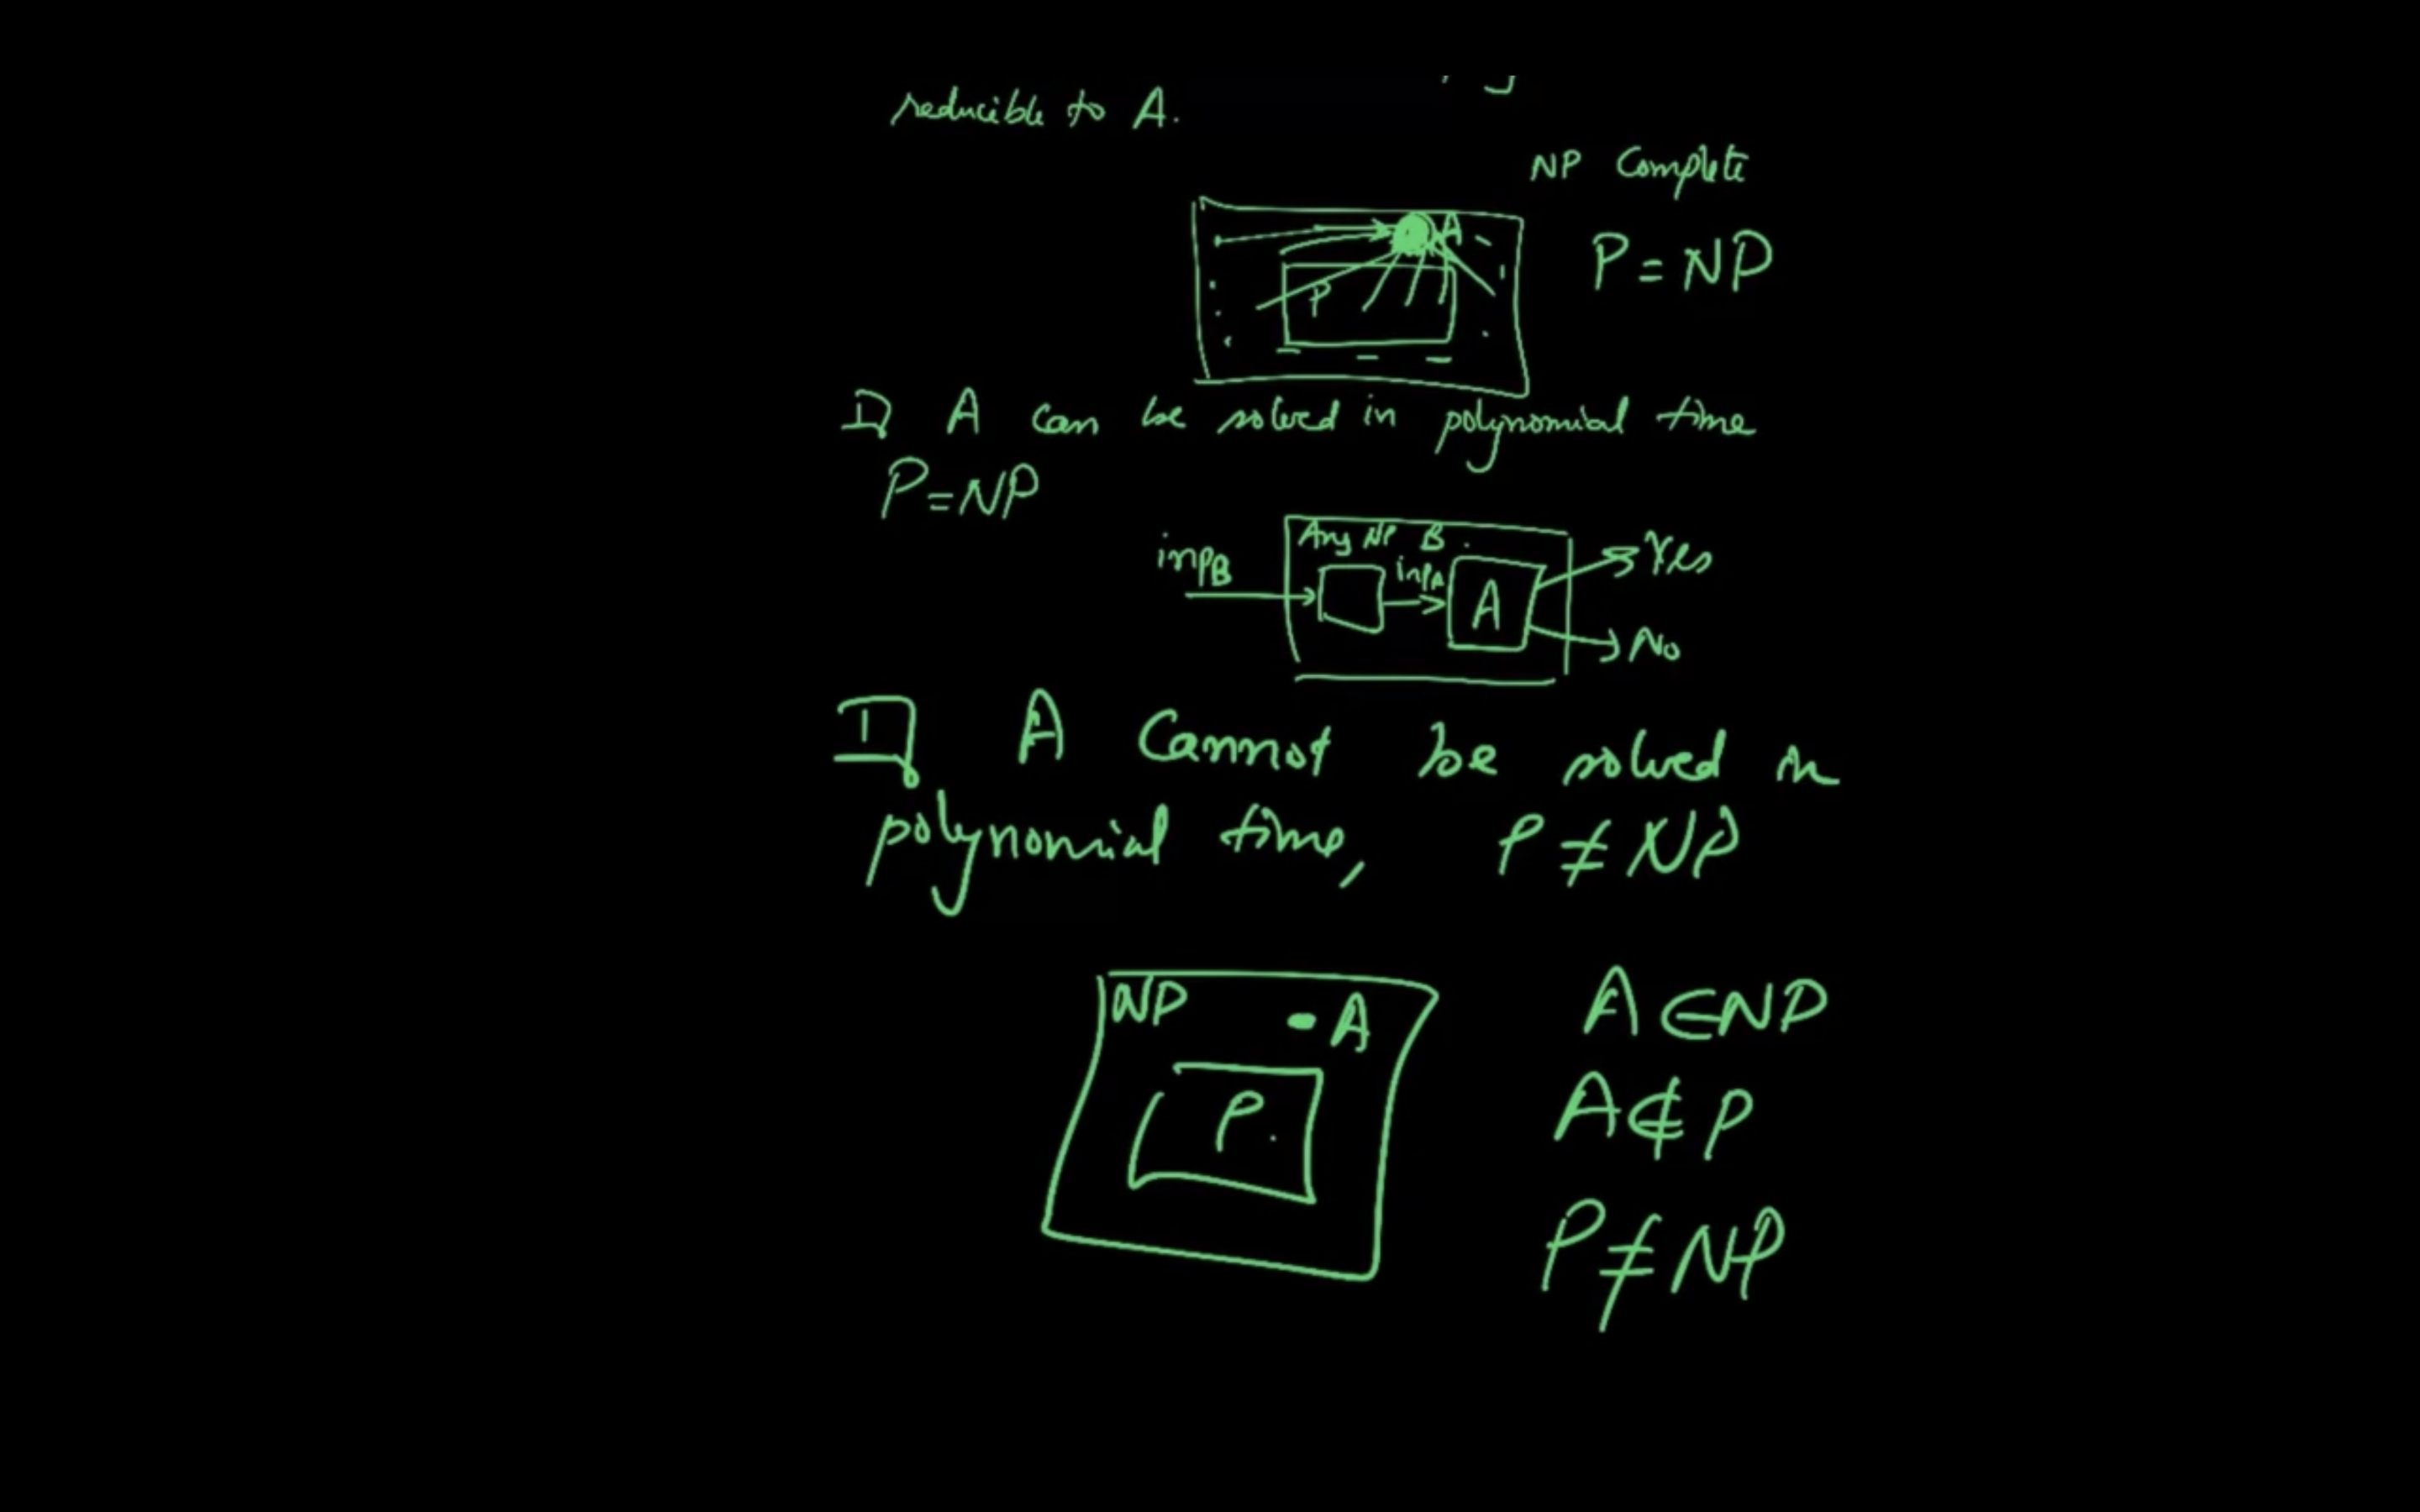 reducible to A.
NP Complete
A
P = NP
P
A can be solved in polynomial time
P=NP
Any NP B.
inpB
inpA
A
Yes
No
A cannot be solved in
polynomial time, P ≠ NP
NP
A
A ∈ NP
P.
A ∉ P
P ≠ NP